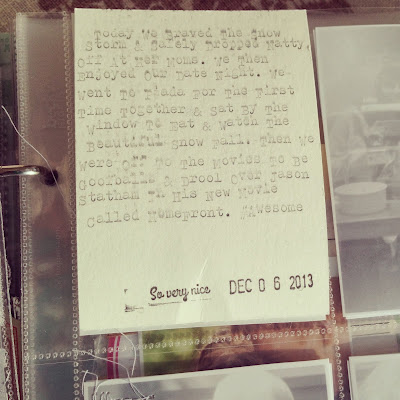 Today We Braved The Snow
Storm & Safely Dropped Matty,
Off At Her Moms. We Then
Enjoyed Our Date Night. We
Went To Piada For The First
Time Together & Sat By The
Window To Eat & Watch The
Beautiful Snow Fall. Then We
Were Off To The Movies To Be
Goofballs & Drool Over Jason
Statham In His New Movie
Called Homefront. #Awesome
So very nice DEC 06 2013